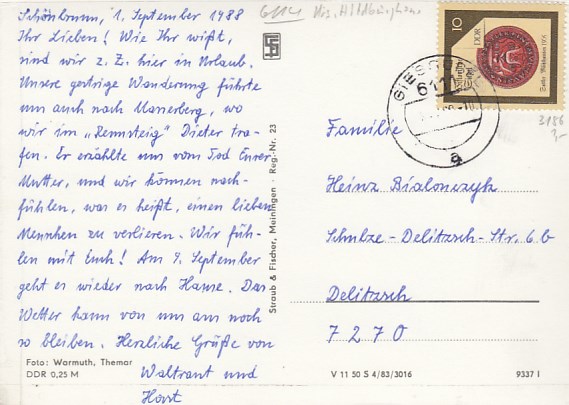 Schönbrunn, 1. September 1988
Ihr Lieben! Wie Ihr wißt,
sind wir z. Z. hier in Urlaub.
Unsere gestrige Wanderung führte
uns auch nach Masserberg, wo
wir im „Rennsteig" Dieter tra-
fen. Er erzählte uns vom Tod Eurer
Mutter, und wir können nach-
fühlen, was es heißt, einen lieben
Menschen zu verlieren. Wir füh-
len mit Euch! Am 9. September
geht es wieder nach Hause. Das
Wetter kann von uns aus noch
so bleiben. Herzliche Grüße von
Waltraut und
Horst
Foto: Warmuth, Themar
DDR 0,25 M
Straub & Fischer, Meiningen · Reg.-Nr. 23
10
DDR
611
a
3156
Familie
Heinz Bialonczyk
Schulze-Delitzsch-Str. 6 b
Delitzsch
7270
V 11 50 S 4/83/3016
9337 I